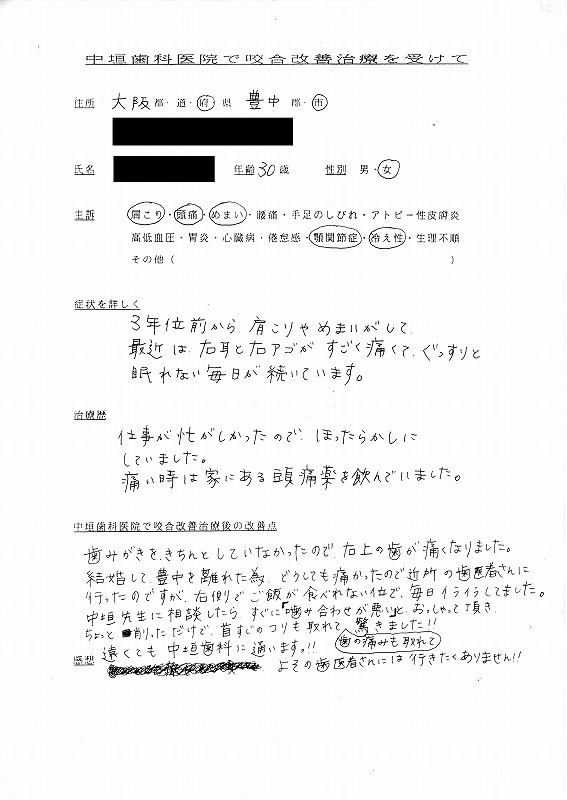 中垣歯科医院で咬合改善治療を受けて
住所 大阪 都・道・府・県 豊中 郡・市
氏名 年齢 30歳 性別 男・女
主訴 肩こり・頭痛・めまい・腰痛・手足のしびれ・アトピー性皮膚炎
高低血圧・胃炎・心臓病・倦怠感・顎関節症・冷え性・生理不順
その他( )
症状を詳しく
3年位前から、肩こりやめまいがして、
最近は、右耳と右アゴがすごく痛くて、ぐっすりと
眠れない毎日が続いています。
治療歴
仕事が忙がしかったので、ほったらかしに
していました。
痛い時は家にある頭痛薬を飲んでいました。
中垣歯科医院で咬合改善治療後の改善点
歯みがきを、きちんとしていなかったので、右上の歯が痛くなりました。
結婚して、豊中を離れた為、どうしても痛かったので近所の歯医者さんに
行ったのですが、右側でご飯が食べれない位で、毎日イライラしてました。
中垣先生に相談したら、すぐに「噛み合わせが悪い」と、おっしゃって頂き、
ちょっと削っただけで、首すじのコリも取れて、驚きました!!
歯の痛みも取れて
遠くても中垣歯科に通います。!!
感想 よその歯医者さんには行きたくありません!!